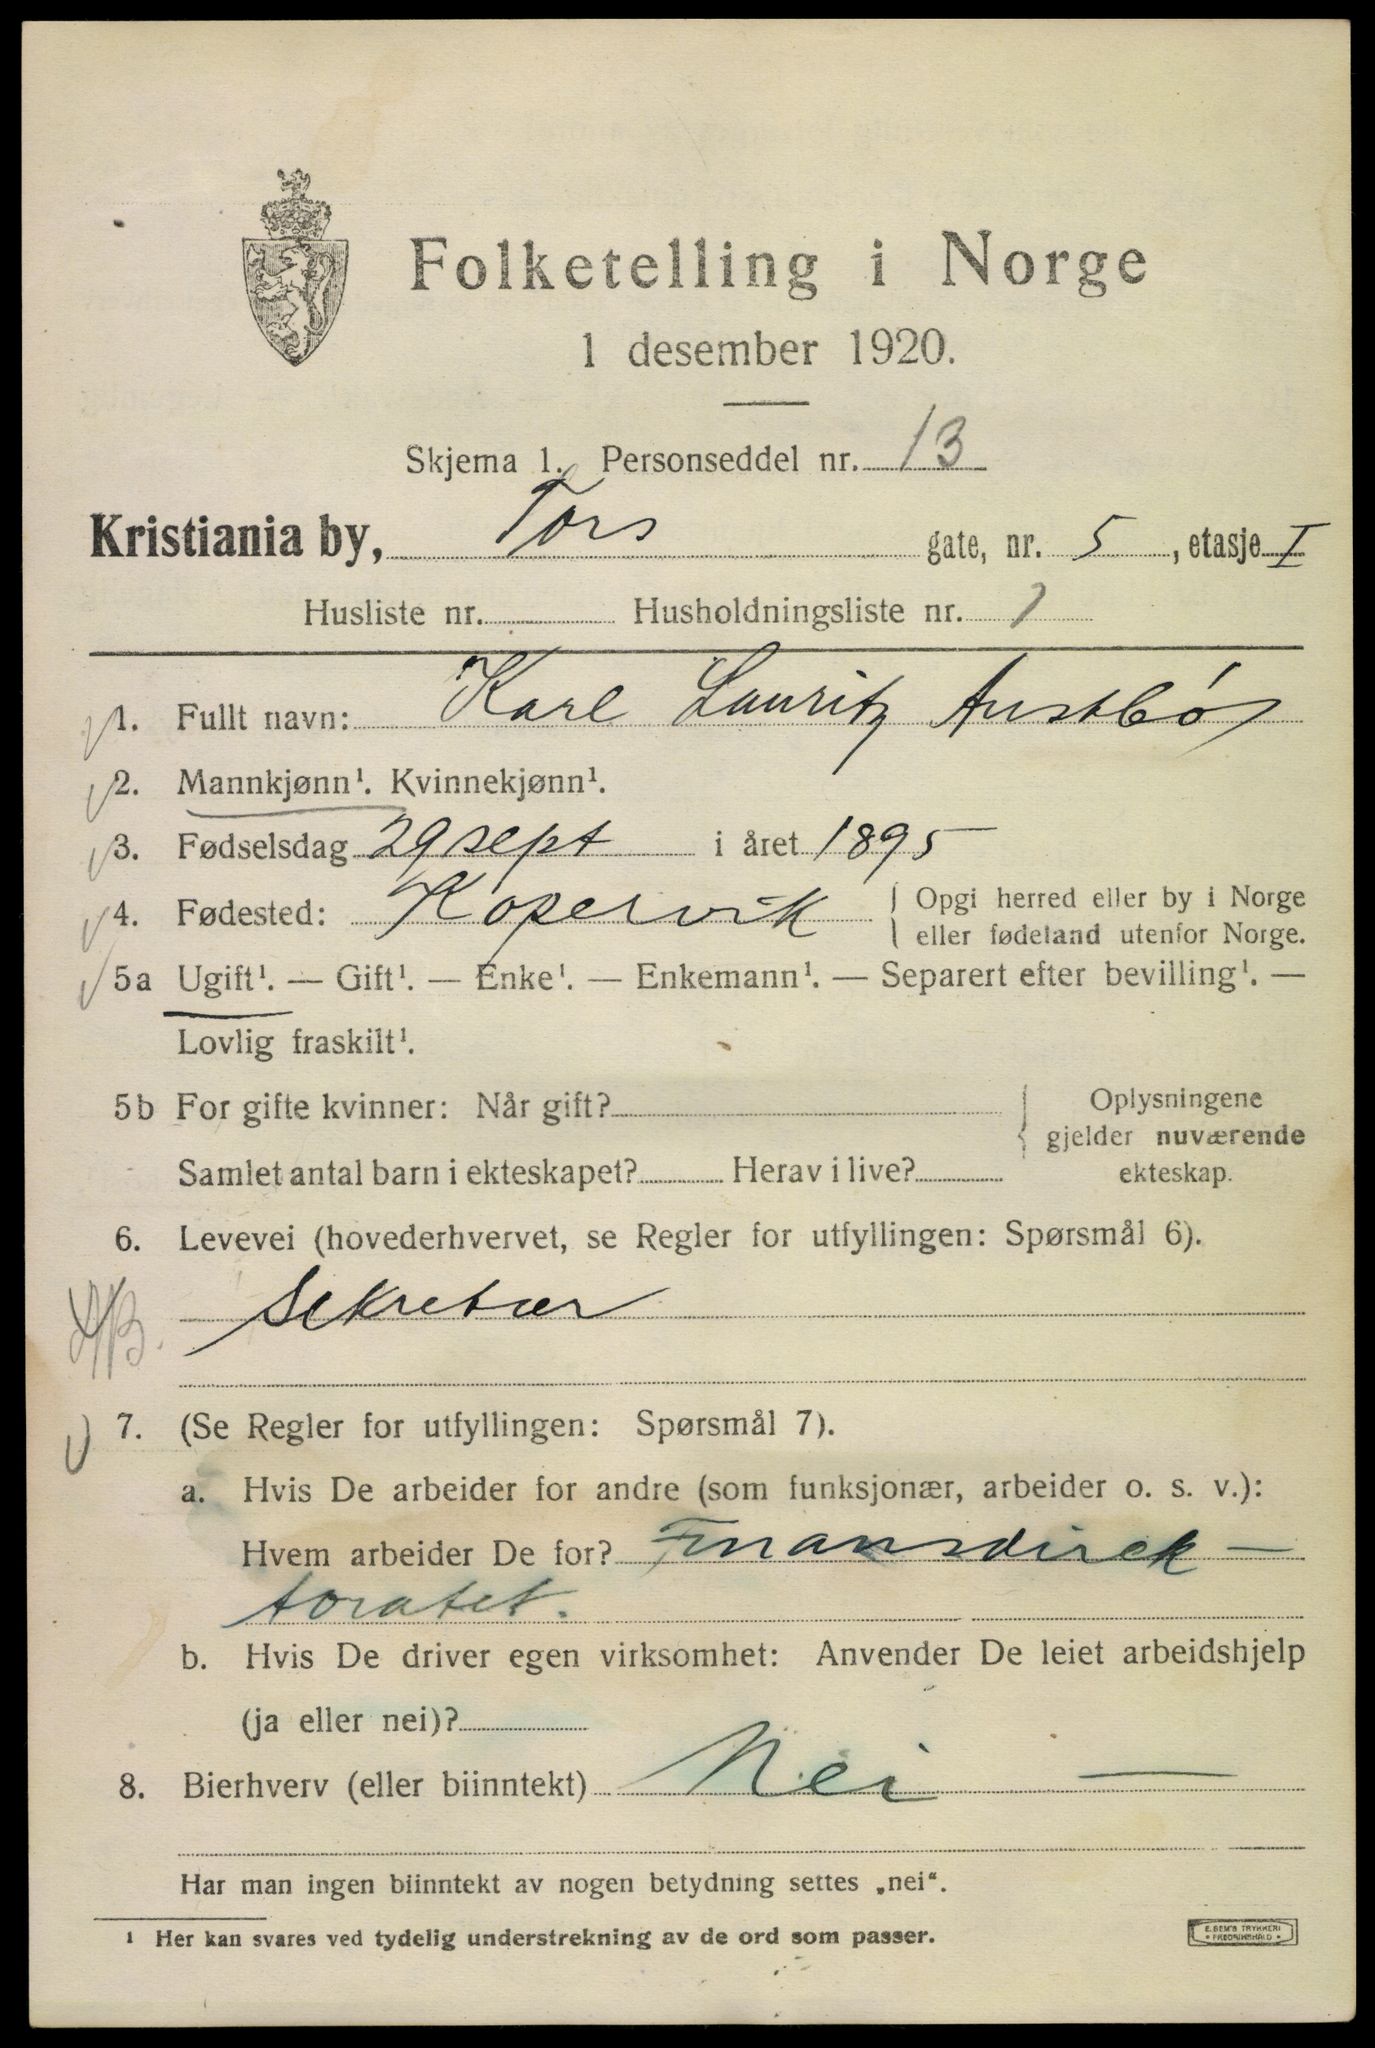 Folketelling i Norge
1 desember 1920.
Skjema 1. Personseddel nr. 13
Kristiania by, Tors gate, nr. 5, etasje I
Husliste nr. Husholdningsliste nr. 1
1. Fullt navn: Karl Lauritz Austbó
2. Mannkjønn¹. Kvinnekjønn¹.
3. Fødselsdag 29 sept i året 1895
4. Fødested: Kopervik { Opgi herred eller by i Norge
eller fødeland utenfor Norge.
5a Ugift¹. — Gift¹. — Enke¹. — Enkemann¹. — Separert efter bevilling¹. —
Lovlig fraskilt¹.
5b For gifte kvinner: Når gift? { Oplysningene
gjelder nuværende
Samlet antal barn i ekteskapet? Herav i live? ekteskap.
6. Levevei (hovederhvervet, se Regler for utfyllingen: Spørsmål 6).
Sekretær
7. (Se Regler for utfyllingen: Spørsmål 7).
a. Hvis De arbeider for andre (som funksjonær, arbeider o. s. v.):
Hvem arbeider De for? Finansdirek-
toratet.
b. Hvis De driver egen virksomhet: Anvender De leiet arbeidshjelp
(ja eller nei)?
8. Bierhverv (eller biinntekt) Nei —
Har man ingen biinntekt av nogen betydning settes „nei“.
¹ Her kan svares ved tydelig understrekning av de ord som passer.
E. SEM'S TRYKKERI
• FREDRIKSHALD •